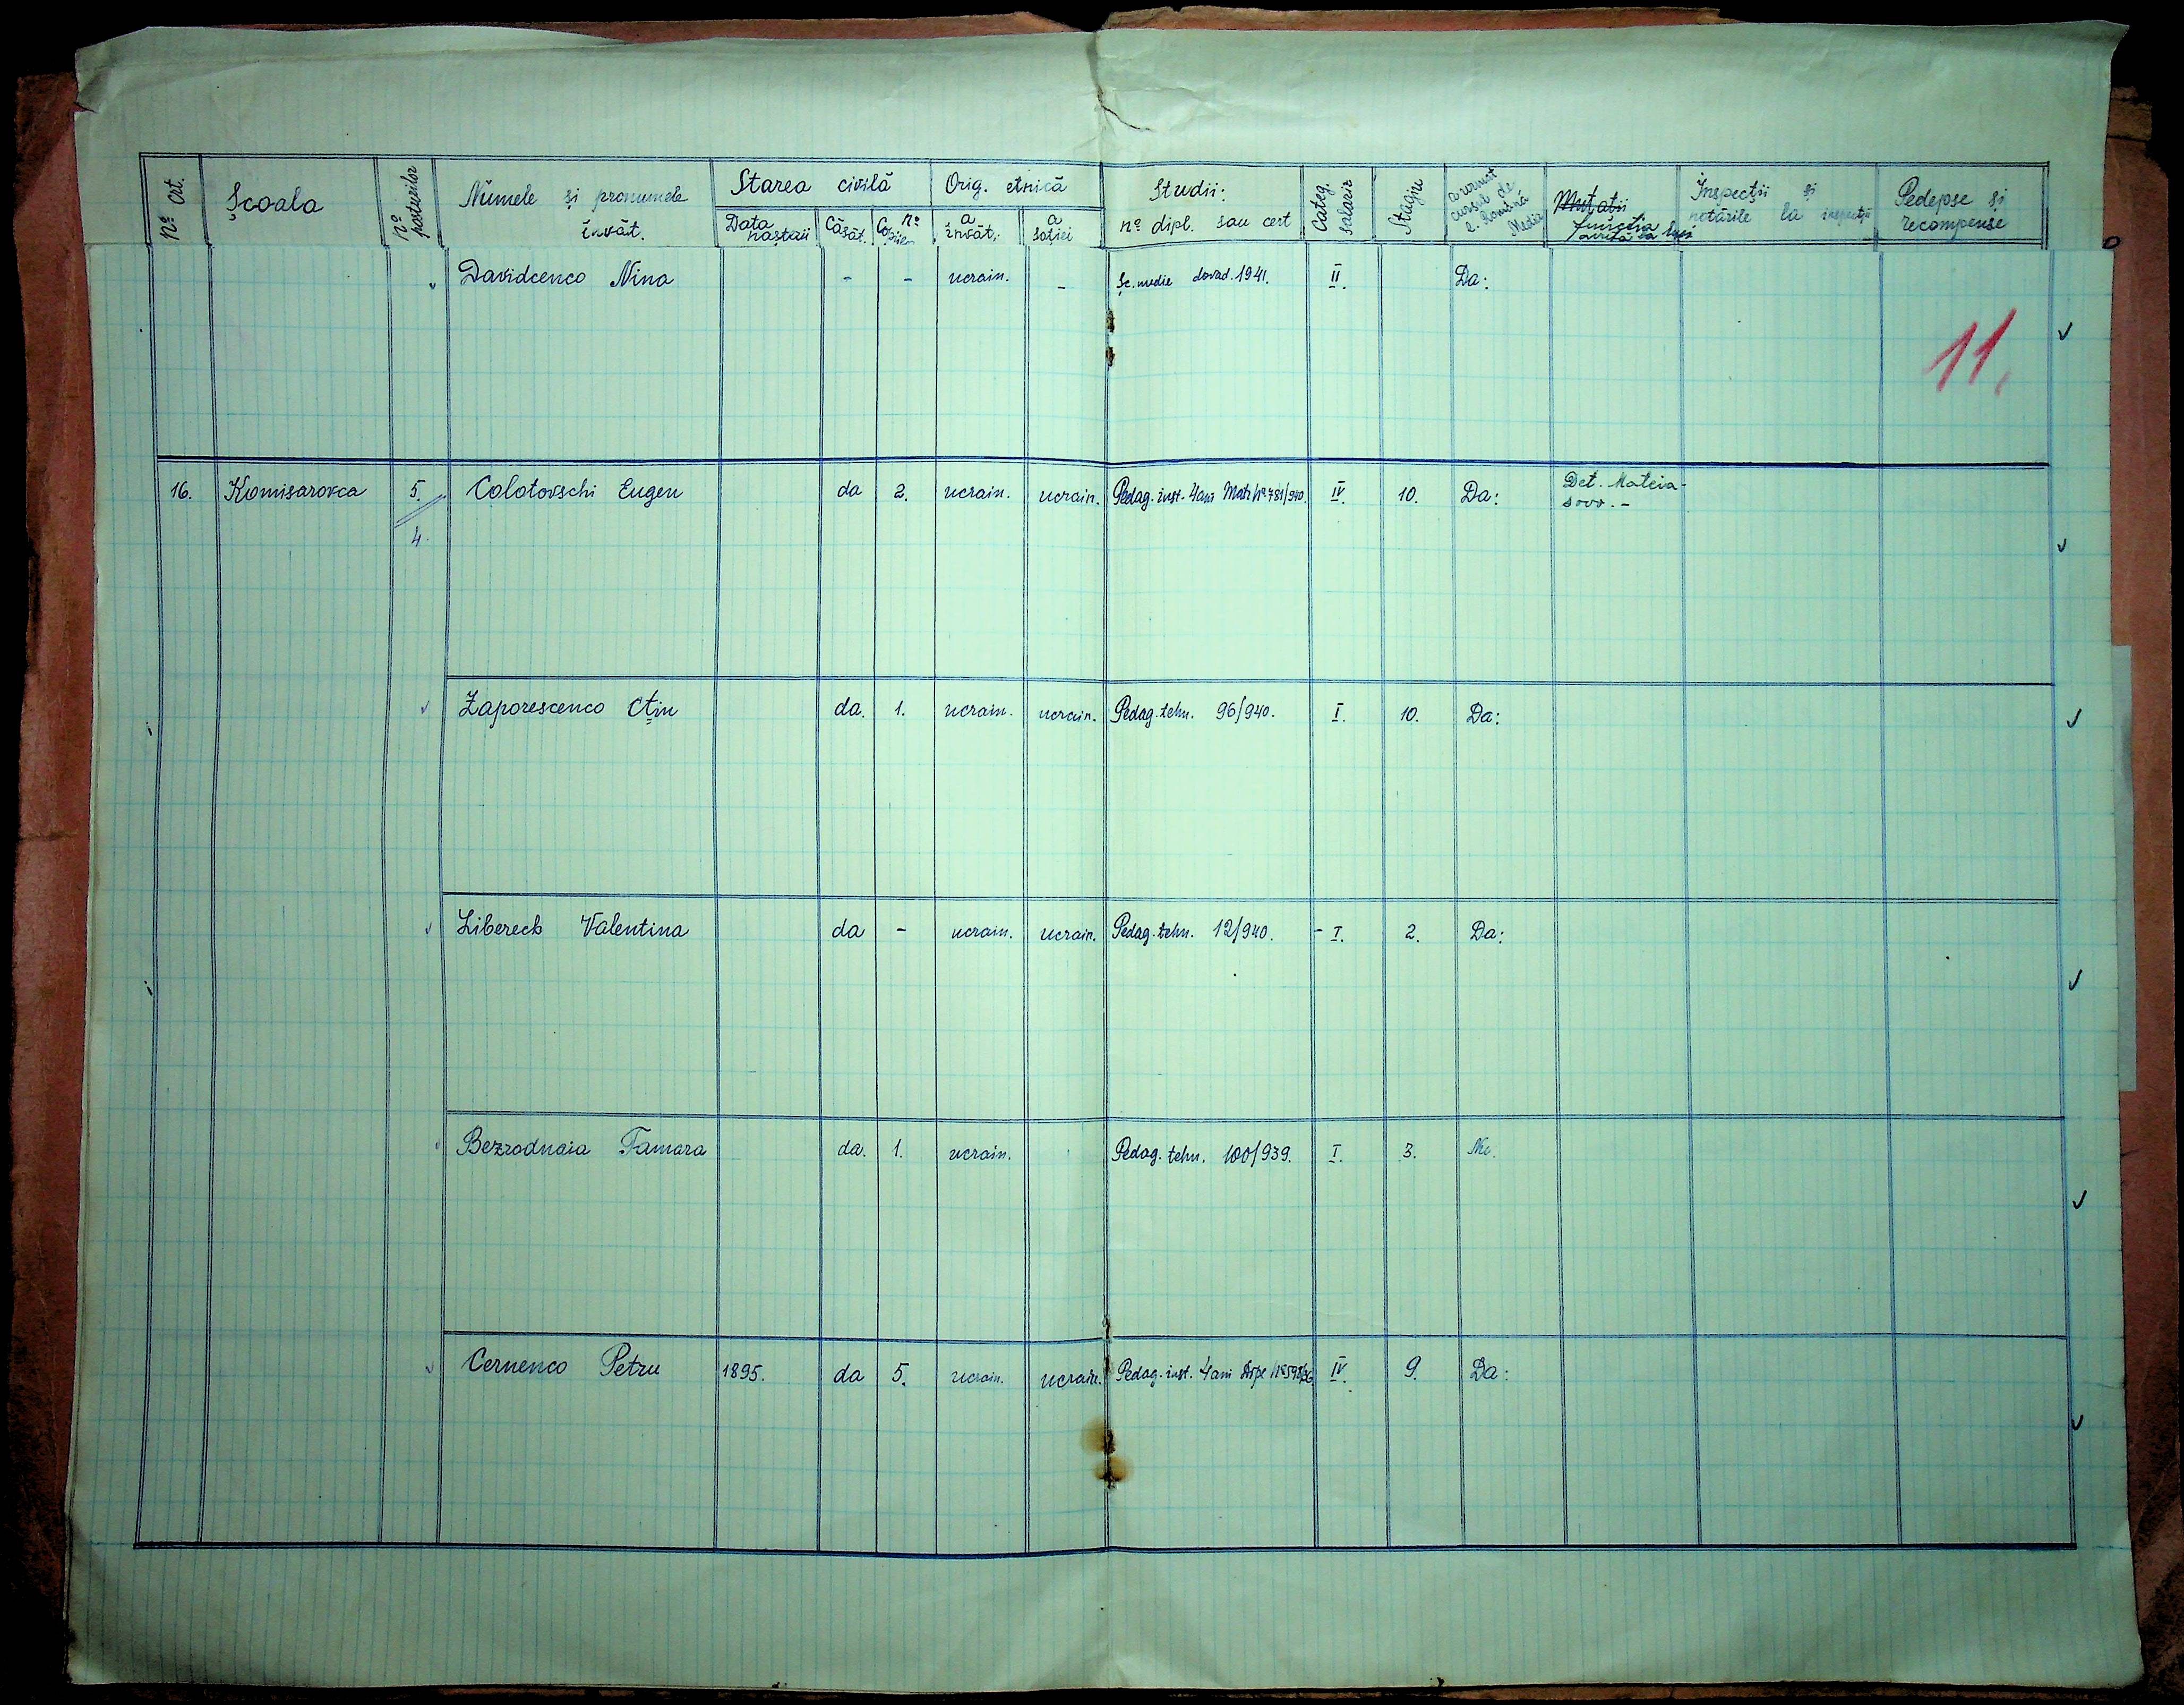 Nº Crt. Școala Nº posturilor Numele și pronumele învăț. Starea civilă Orig. etnică Studii: nº dipl. sau cert Categ. salarii Stagiu a urmat cursul de l. Română Media Mutații funcția Inspecții și notările la inspecții Pedepse și recompense
Data nașterii Căsăt. Nº Copiilor a învăț. a soției
Davidcenco Nina - - ucrain. - Șc. medie dovad. 1941. II. Da:
11.
16. Komisarovca 5. Colotovschi Eugen da 2. ucrain. ucrain. Pedag. inst. 4 ani Matr Nº 781/940. IV. 10. Da: Det. Mateia-
4. sovo. -
Zaporescenco Ctin da. 1. ucrain. ucrain. Pedag. tehn. 96/940. I. 10. Da:
Libereck Valentina da - ucrain. ucrain. Pedag. tehn. 12/940. - I. 2. Da:
Bezrodnaia Tamara da. 1. ucrain. Pedag. tehn. 100/939. I. 3. Nu.
Cernenco Petru 1895. da 5. ucrain. ucrain. Pedag. inst. 4 ani IV. 9. Da: